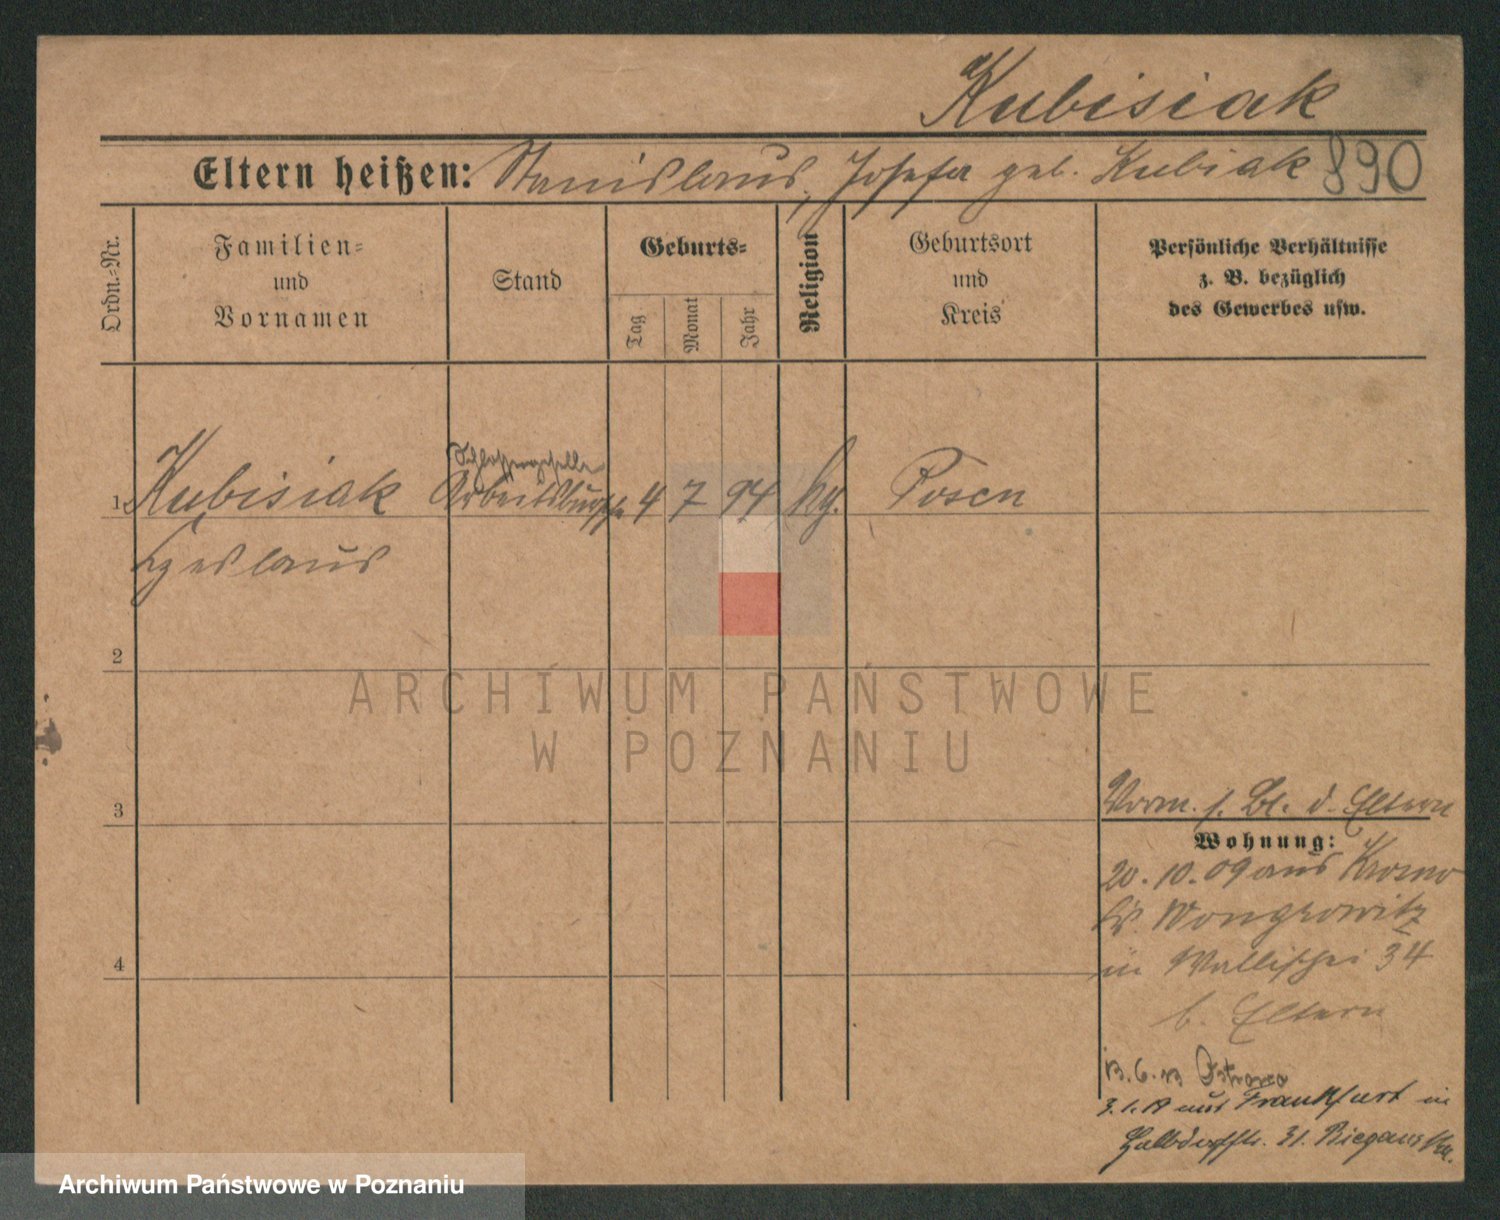 Kubisiak
Eltern heißen: Stanislaus, Josefa geb. Kubiak 890
Ordn.-Nr.
Familien-
und
Vornamen
Stand
Geburts-
Tag
Monat
Jahr
Religion
Geburtsort
und
Kreis
Persönliche Verhältnisse
z. B. bezüglich
des Gewerbes usw.
Schlossergeselle
1 Kubisiak Arbeitsbursche 4 7 94 Posen
2
3
4
Verm. s. Bl. d. Eltern
Wohnung:
20. 10. 09 aus
Wongrowitz
in Wallischei 34
b. Eltern
13. 6. 13 Ostrowo
aus Frankfurt in
31.
ARCHIWUM PAŃSTWOWE
W POZNANIU
Archiwum Państwowe w Poznaniu